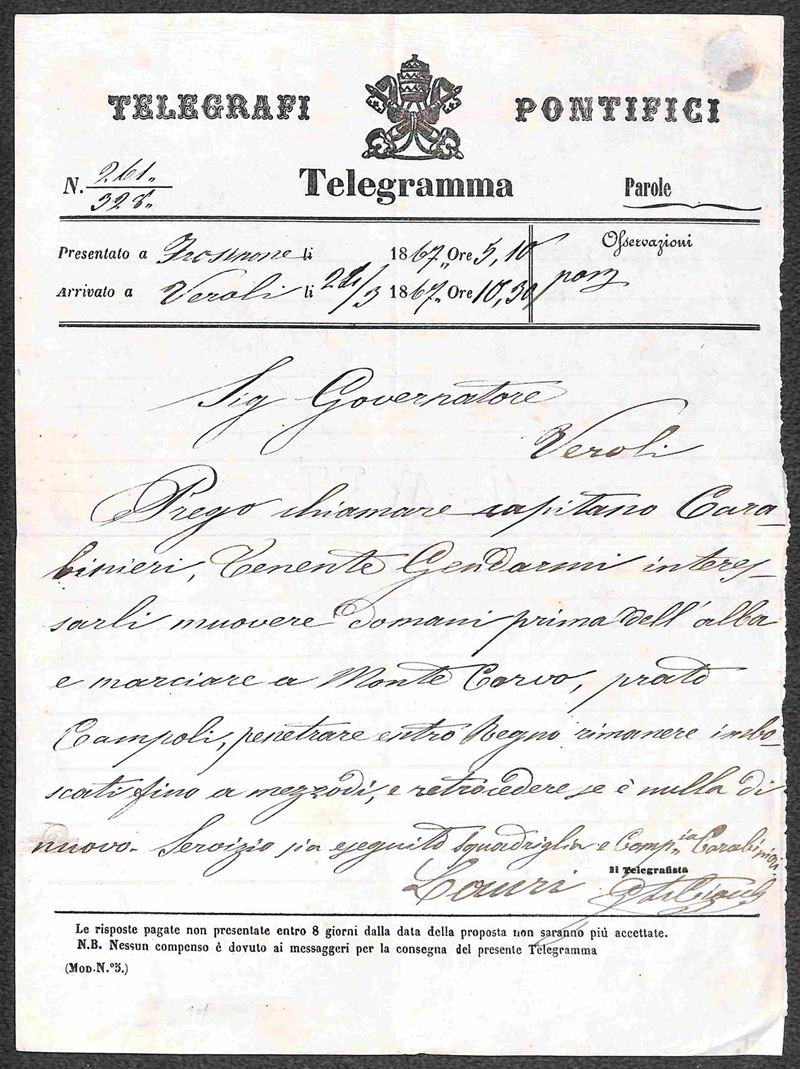 TELEGRAFI PONTIFICI
N. 261.
328.
Telegramma
Parole
Presentato a Frosinone li 1867 Ore 5,10
Osservazioni
Arrivato a Veroli li /3 1867 Ore 10,30
Sig Governatore
Veroli
Prego chiamare capitano Cara-
binieri, Tenente Gendarmi interes-
sarli muovere domani prima dell'alba
e marciare a Monte Corvo, prato
Campoli, penetrare entro Regno rimanere imbo-
scati fino a mezzodì, e retrocedere se è nulla di
nuovo. Servizio sia eseguito squadriglia e Comp.ia Carabinieri
Il Telegrafista
Lauri
Le risposte pagate non presentate entro 8 giorni dalla data della proposta non saranno più accettate.
N.B. Nessun compenso è dovuto ai messaggeri per la consegna del presente Telegramma
(MOD. N.º 5.)